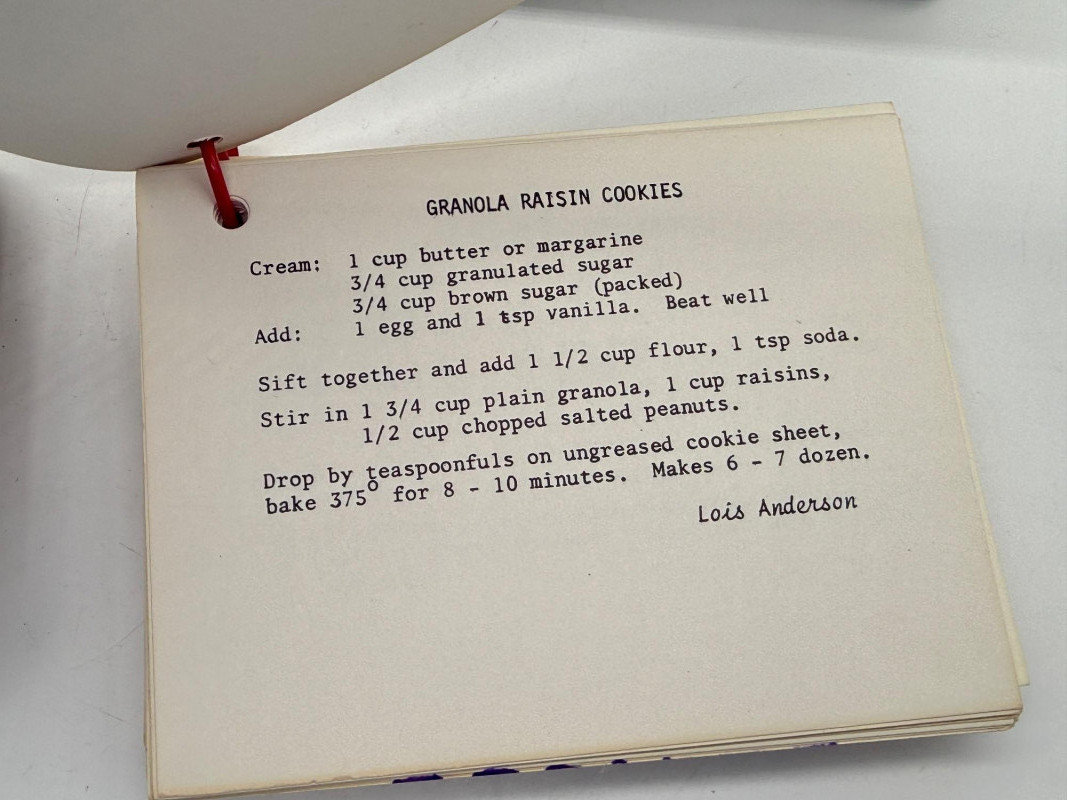 GRANOLA RAISIN COOKIES
Cream: 1 cup butter or margarine
3/4 cup granulated sugar
3/4 cup brown sugar (packed)
Add: 1 egg and 1 tsp vanilla. Beat well
Sift together and add 1 1/2 cup flour, 1 tsp soda.
Stir in 1 3/4 cup plain granola, 1 cup raisins,
1/2 cup chopped salted peanuts.
Drop by teaspoonfuls on ungreased cookie sheet,
bake 375° for 8 - 10 minutes. Makes 6 - 7 dozen.
Lois Anderson